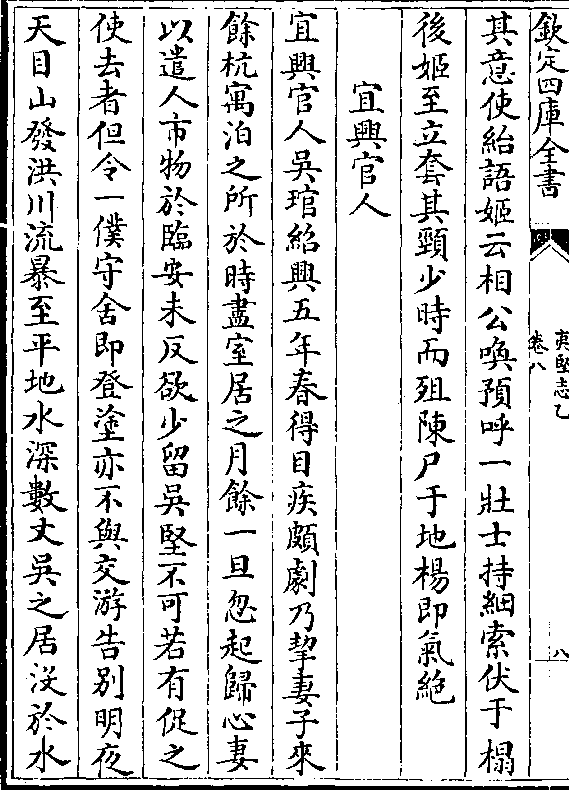 欽定四庫全書
夷堅志乙
卷八
八
其意使紿語姬云相公喚預呼一壯士持細索伏于榻
後姬至立套其頸少時而殂陳尸于地楊即氣絕
宜興官人
宜興官人吳琯紹興五年春得目疾頗劇乃挈妻子來
餘杭寓泊之所於時盡室居之月餘一旦忽起歸心妻
以遣人市物於臨安未反欲少留吳堅不可若有促之
使去者但令一僕守舍即登塗亦不與交游告別明夜
天目山發洪川流暴至平地水深數丈吳之居沒於水